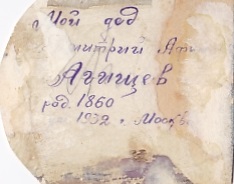 Мой дед
митрий Ат
Агищев
род. 1860
1932 г. Москв